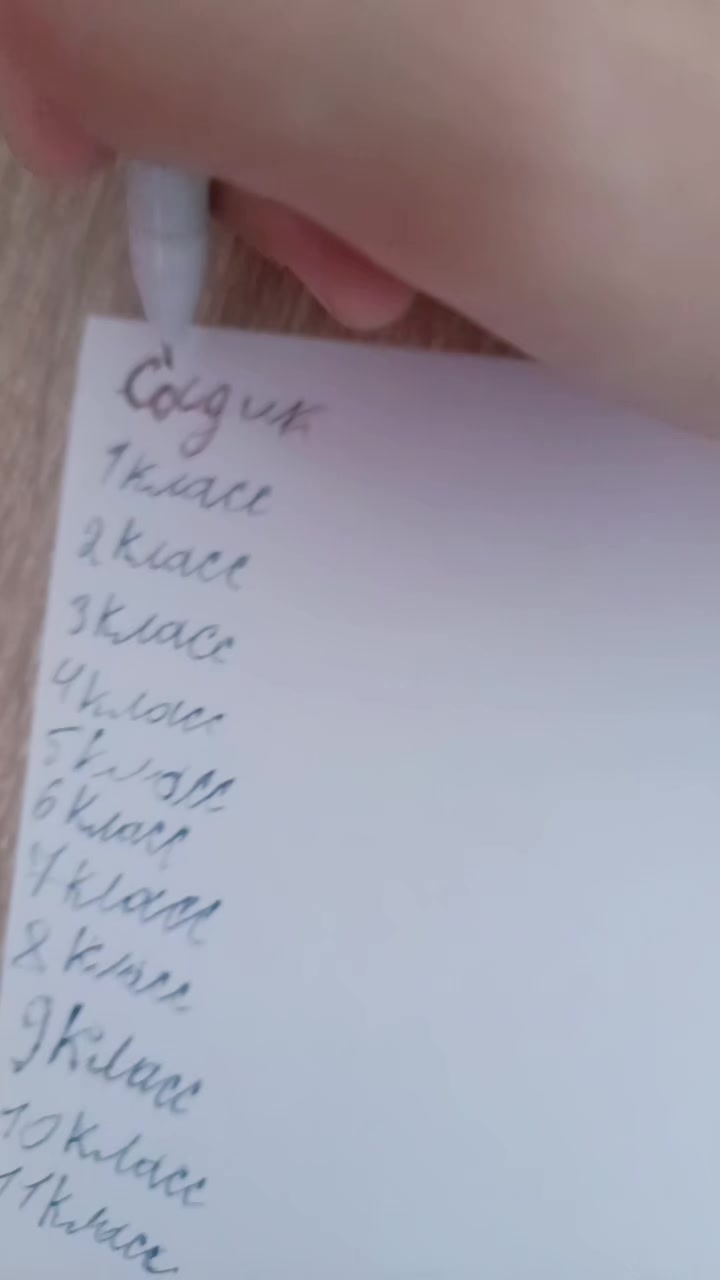 Садик
1 класс
2 класс
3 класс
4 класс
5 класс
6 класс
7 класс
8 класс
9 класс
10 класс
11 класс